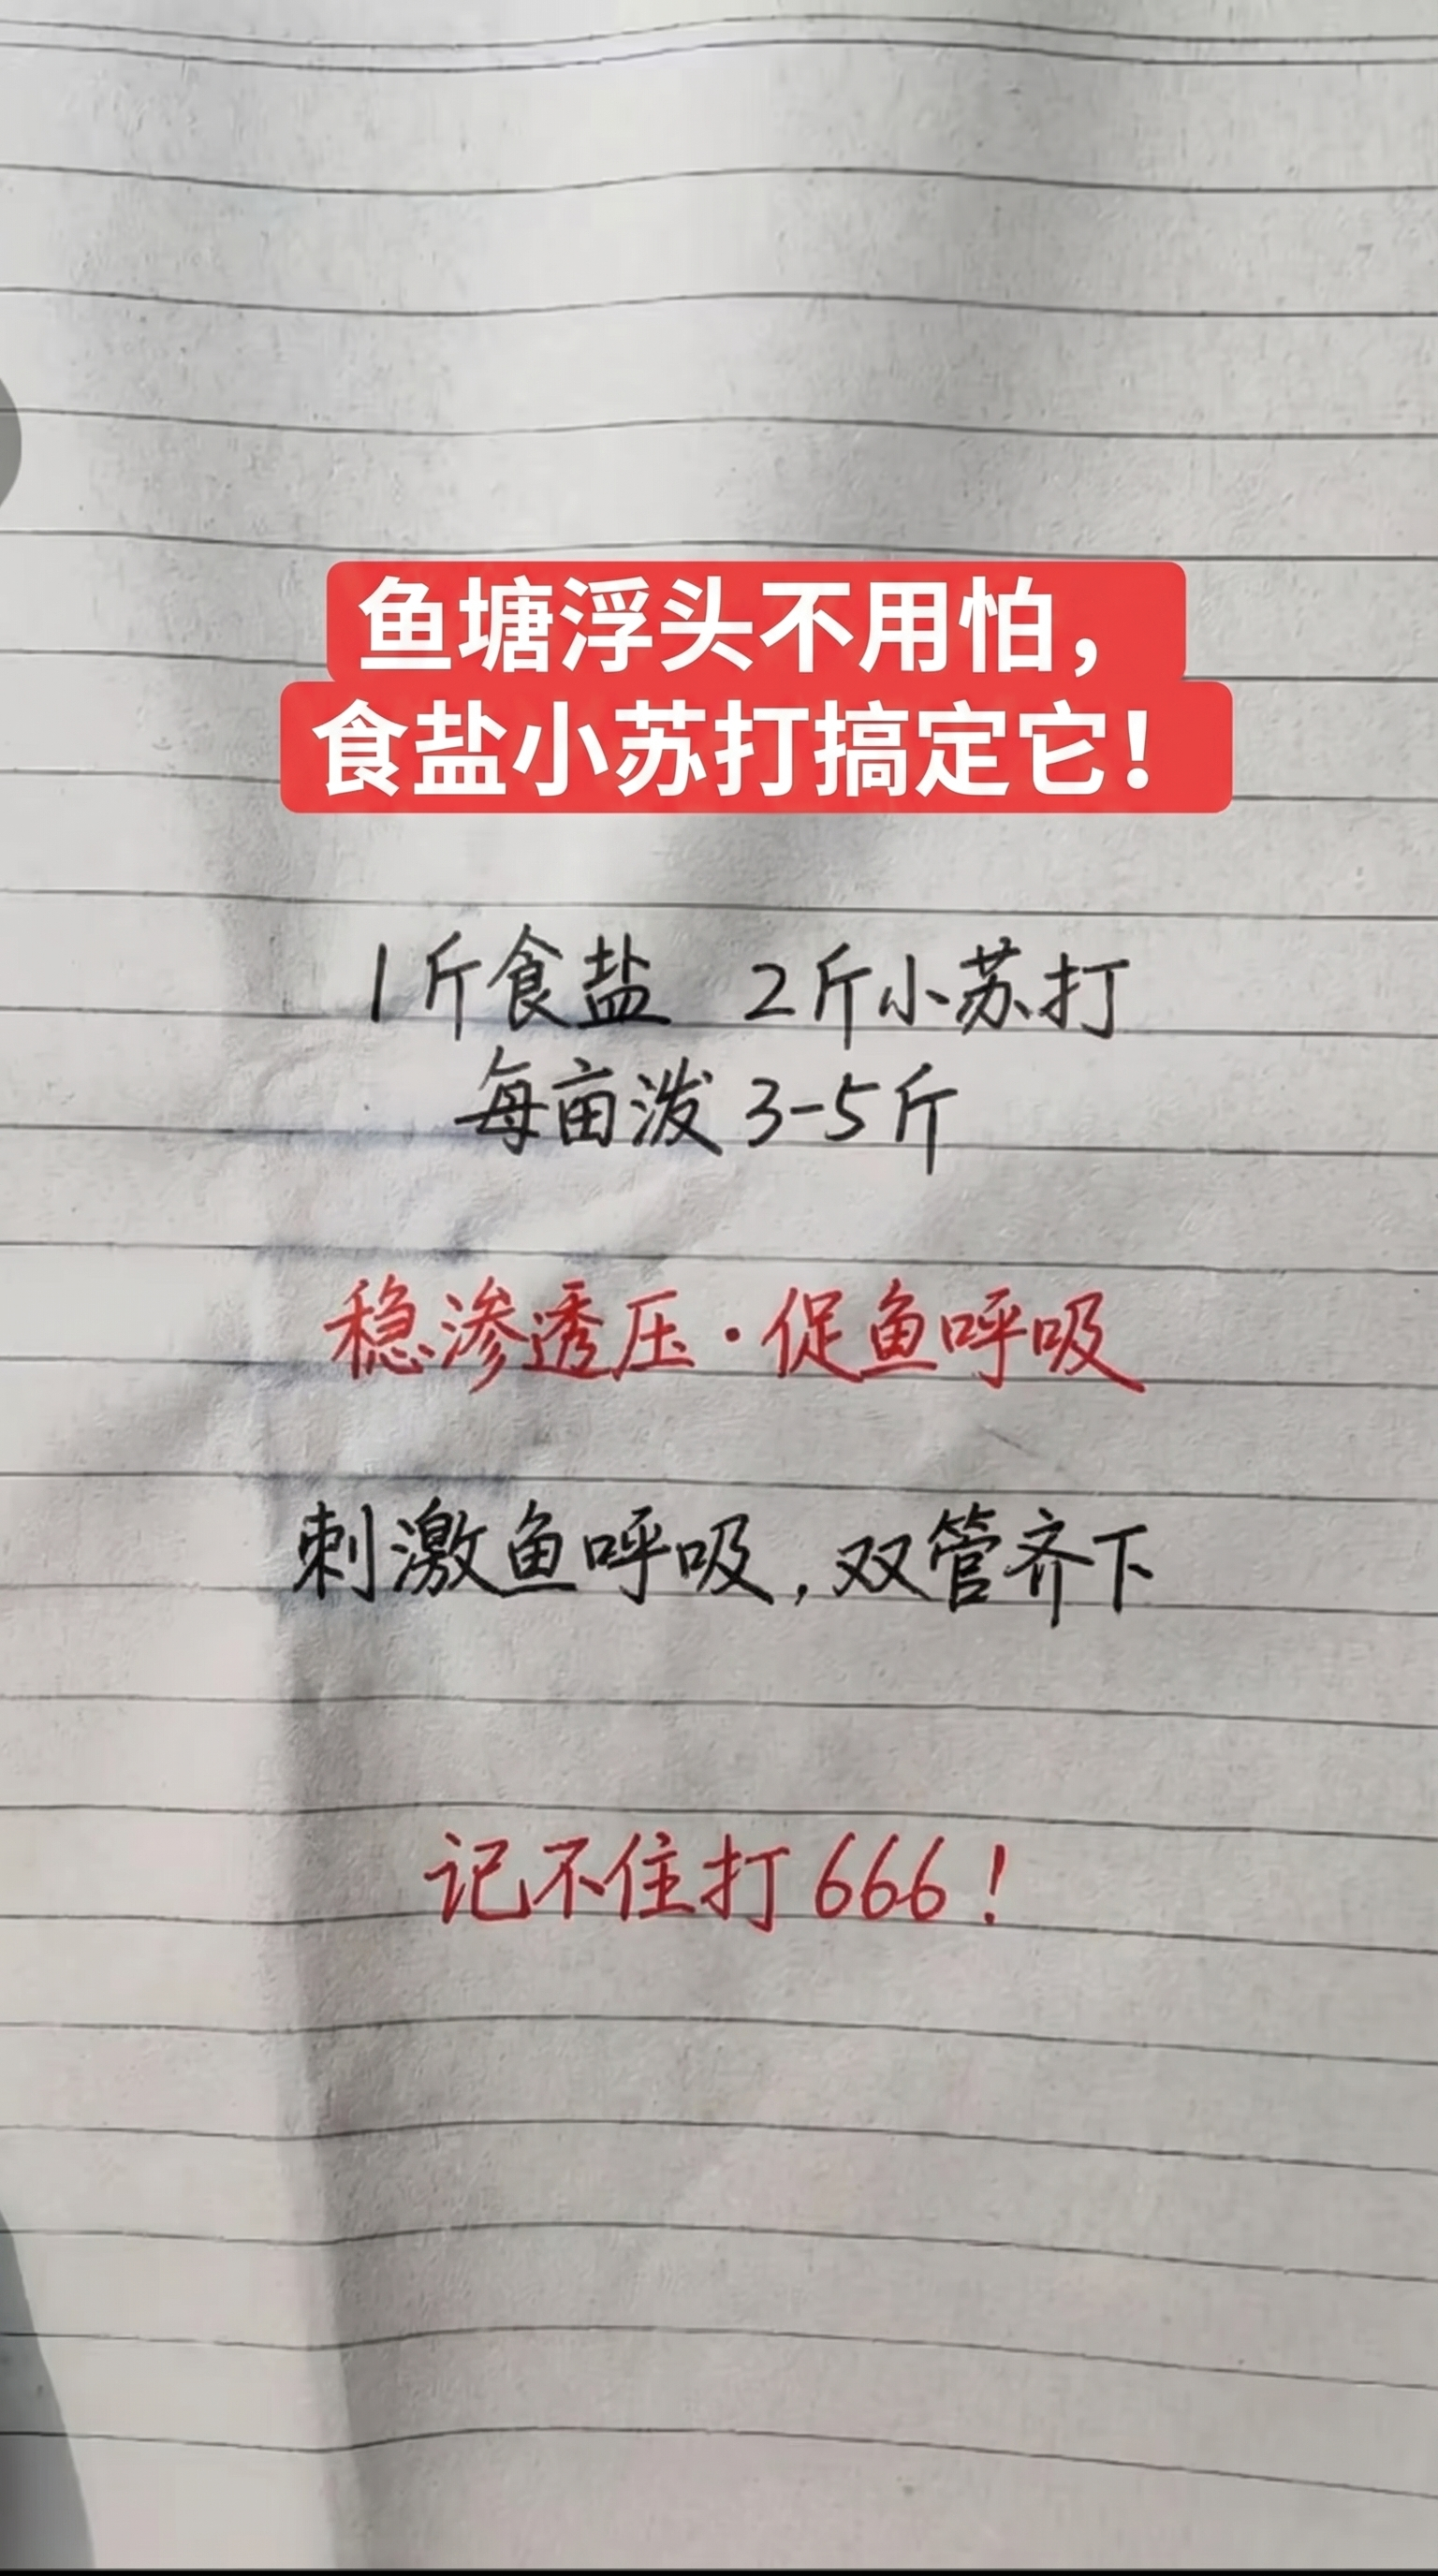 鱼塘浮头不用怕，
食盐小苏打搞定它！
1斤食盐 2斤小苏打
每亩泼3-5斤
稳渗透压·促鱼呼吸
刺激鱼呼吸，双管齐下
记不住打666！